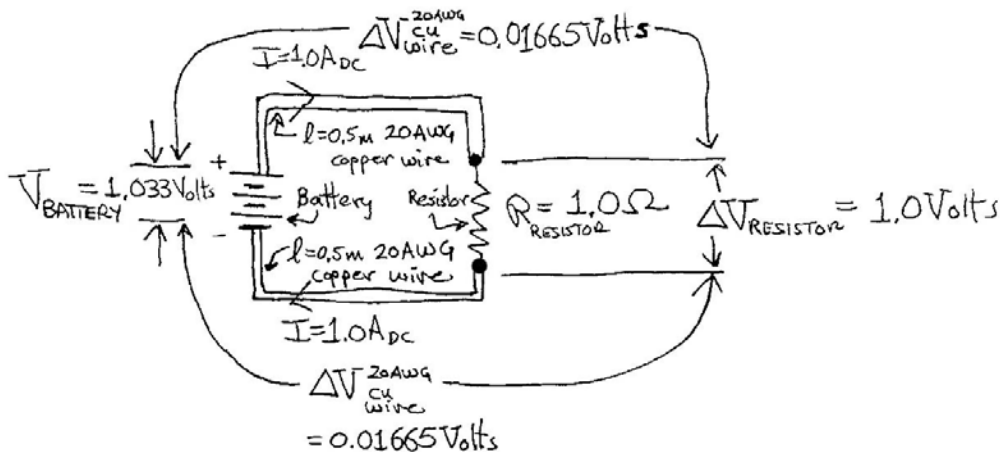 ΔV 20AWG Cu wire = 0.01665 Volts
I = 1.0 A DC
l = 0.5m 20AWG
copper wire
+
V BATTERY = 1.033 Volts
Battery
Resistor
R RESISTOR = 1.0 Ω
ΔV RESISTOR = 1.0 Volts
-
l = 0.5m 20AWG
copper wire
I = 1.0 A DC
ΔV 20AWG Cu wire
= 0.01665 Volts